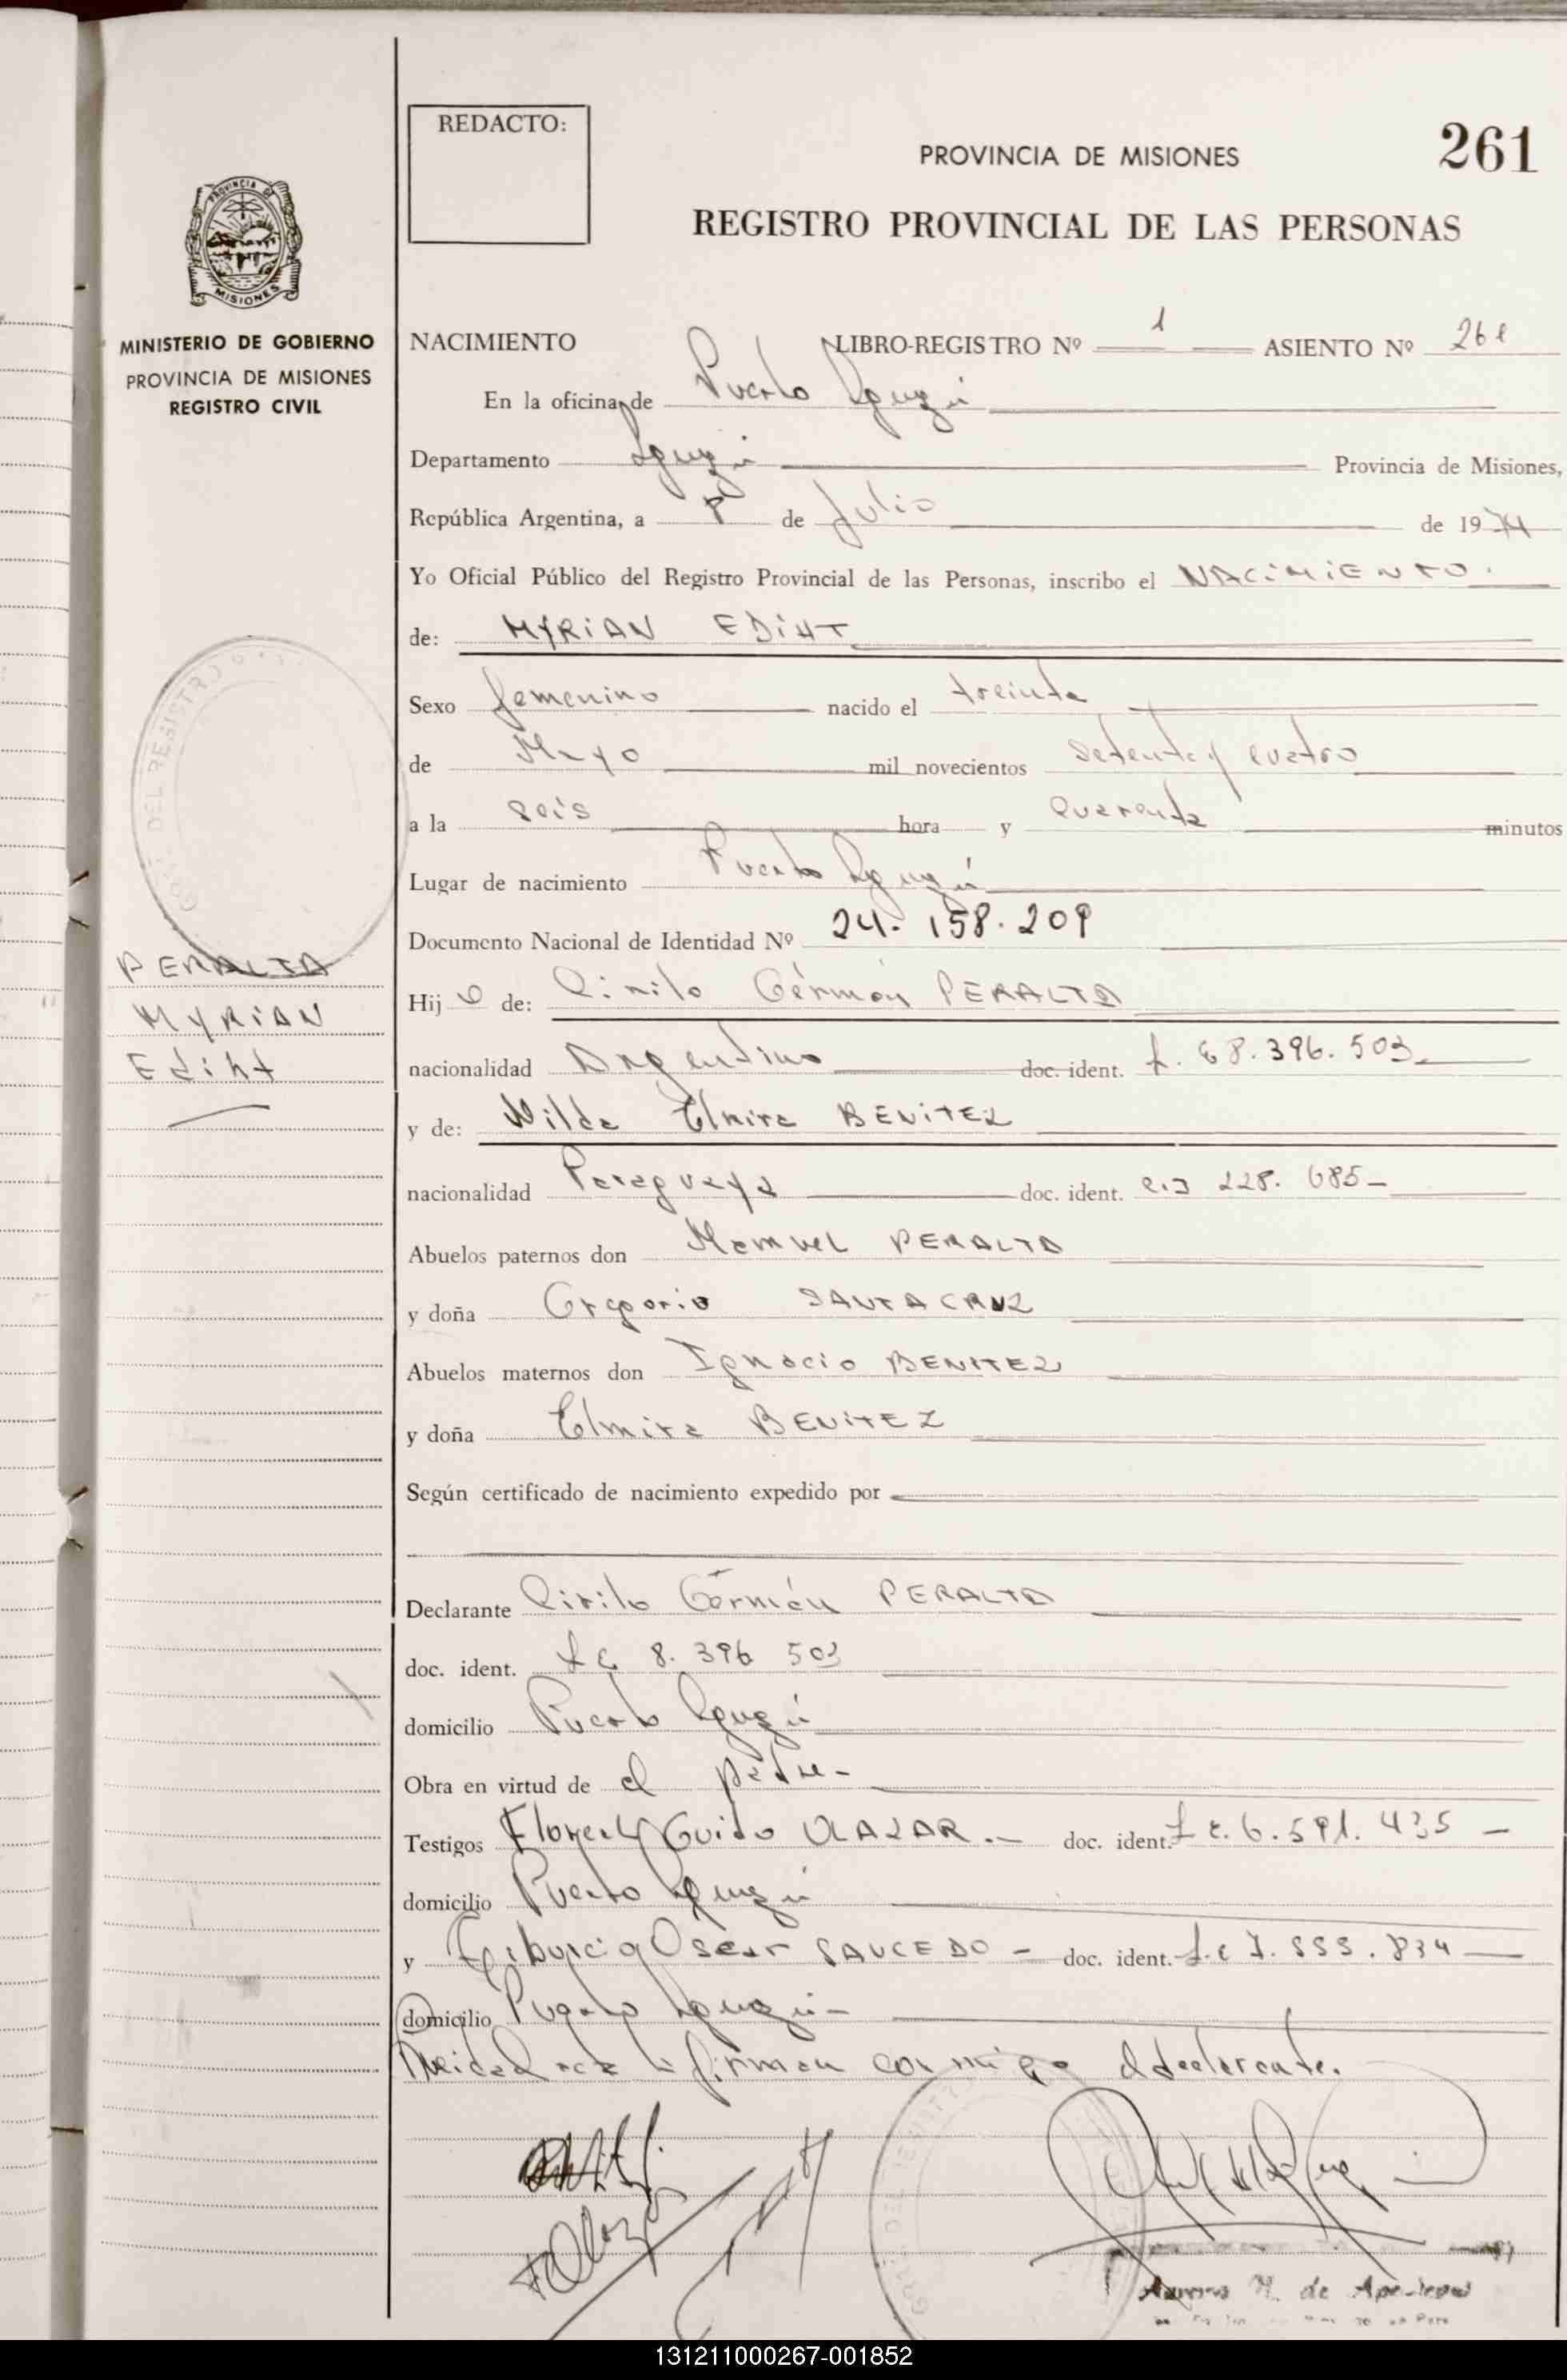 REDACTO:
PROVINCIA DE MISIONES
261
REGISTRO PROVINCIAL DE LAS PERSONAS
PROVINCIA DE
MISIONES
MINISTERIO DE GOBIERNO
PROVINCIA DE MISIONES
REGISTRO CIVIL
NACIMIENTO LIBRO-REGISTRO Nº 1 ASIENTO Nº 261
En la oficina de Puerto Iguazú
Departamento Iguazú Provincia de Misiones,
República Argentina, a 8 de Julio de 1974
Yo Oficial Público del Registro Provincial de las Personas, inscribo el NACIMIENTO.
de: MYRIAN EDIHT
Sexo femenino nacido el treinta
de Mayo mil novecientos setenta y cuatro
a la seis hora y cuarenta minutos
Lugar de nacimiento Puerto Iguazú
Documento Nacional de Identidad Nº 24.158.209
PERALTA
MYRIAN
Ediht
Hij de: Cirilo Germán PERALTA
nacionalidad Argentino doc. ident. 8.396.503
y de: Nilda Elmira BENITEZ
nacionalidad Paraguaya doc. ident. 228.685
Abuelos paternos don Manuel PERALTA
y doña Gregoria SANTACRUZ
Abuelos maternos don Ignacio BENITEZ
y doña Elmira BENITEZ
Según certificado de nacimiento expedido por
Declarante Cirilo Germán PERALTA
doc. ident. LE 8.396 503
domicilio Puerto Iguazú
Obra en virtud de el padre
Testigos Guido OLAZAR.- doc. ident. L e. 6.591.435 -
domicilio Puerto Iguazú
y Tiburcio Oscar SAUCEDO - doc. ident. L.e 7.555.834
domicilio Puerto Iguazú-
Leida acta la firman conmigo el declarante.
M. de
131211000267-001852